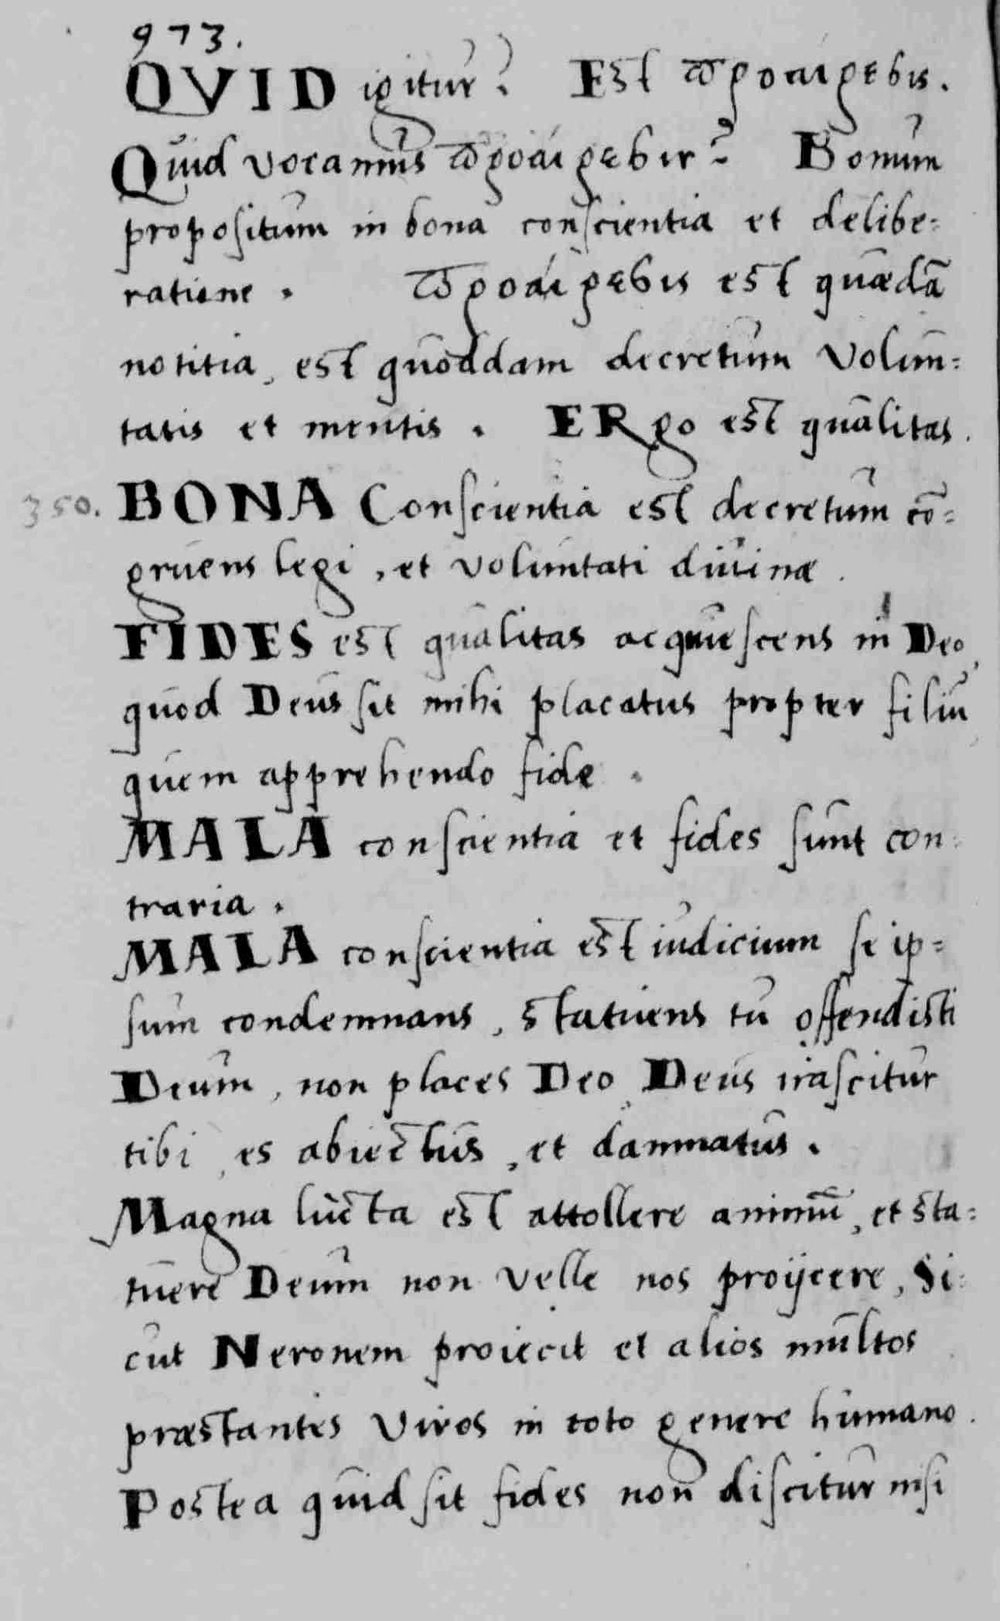 973.
QVID igitur? Est προαιρεσις.
Quid vocamus προαίρεσιν? Bonum
propositum in bona conscientia et delibe=
ratione. προαίρεσις est quædā
notitia, est quoddam decretum volun=
tatis et mentis. ERgo est qualitas.
350. BONA Conscientia est decretum cō=
gruens legi, et voluntati divinæ.
FIDES est qualitas acquiescens in Deo,
quod Deus sit mihi placatus propter filiū
quem apprehendo fide.
MALA conscientia et fides sunt con=
traria.
MALA conscientia est iudicium se ip=
sum condemnans, statuens tu offendisti
Deum, non places Deo, Deus irascitur
tibi, es abiectus, et damnatus.
Magna lucta est attollere animū, et sta=
tuere Deum non velle nos proijcere, Si=
cut Neronem proiecit et alios multos
præstantes viros in toto genere humano.
Postea quid sit fides non discitur nisi